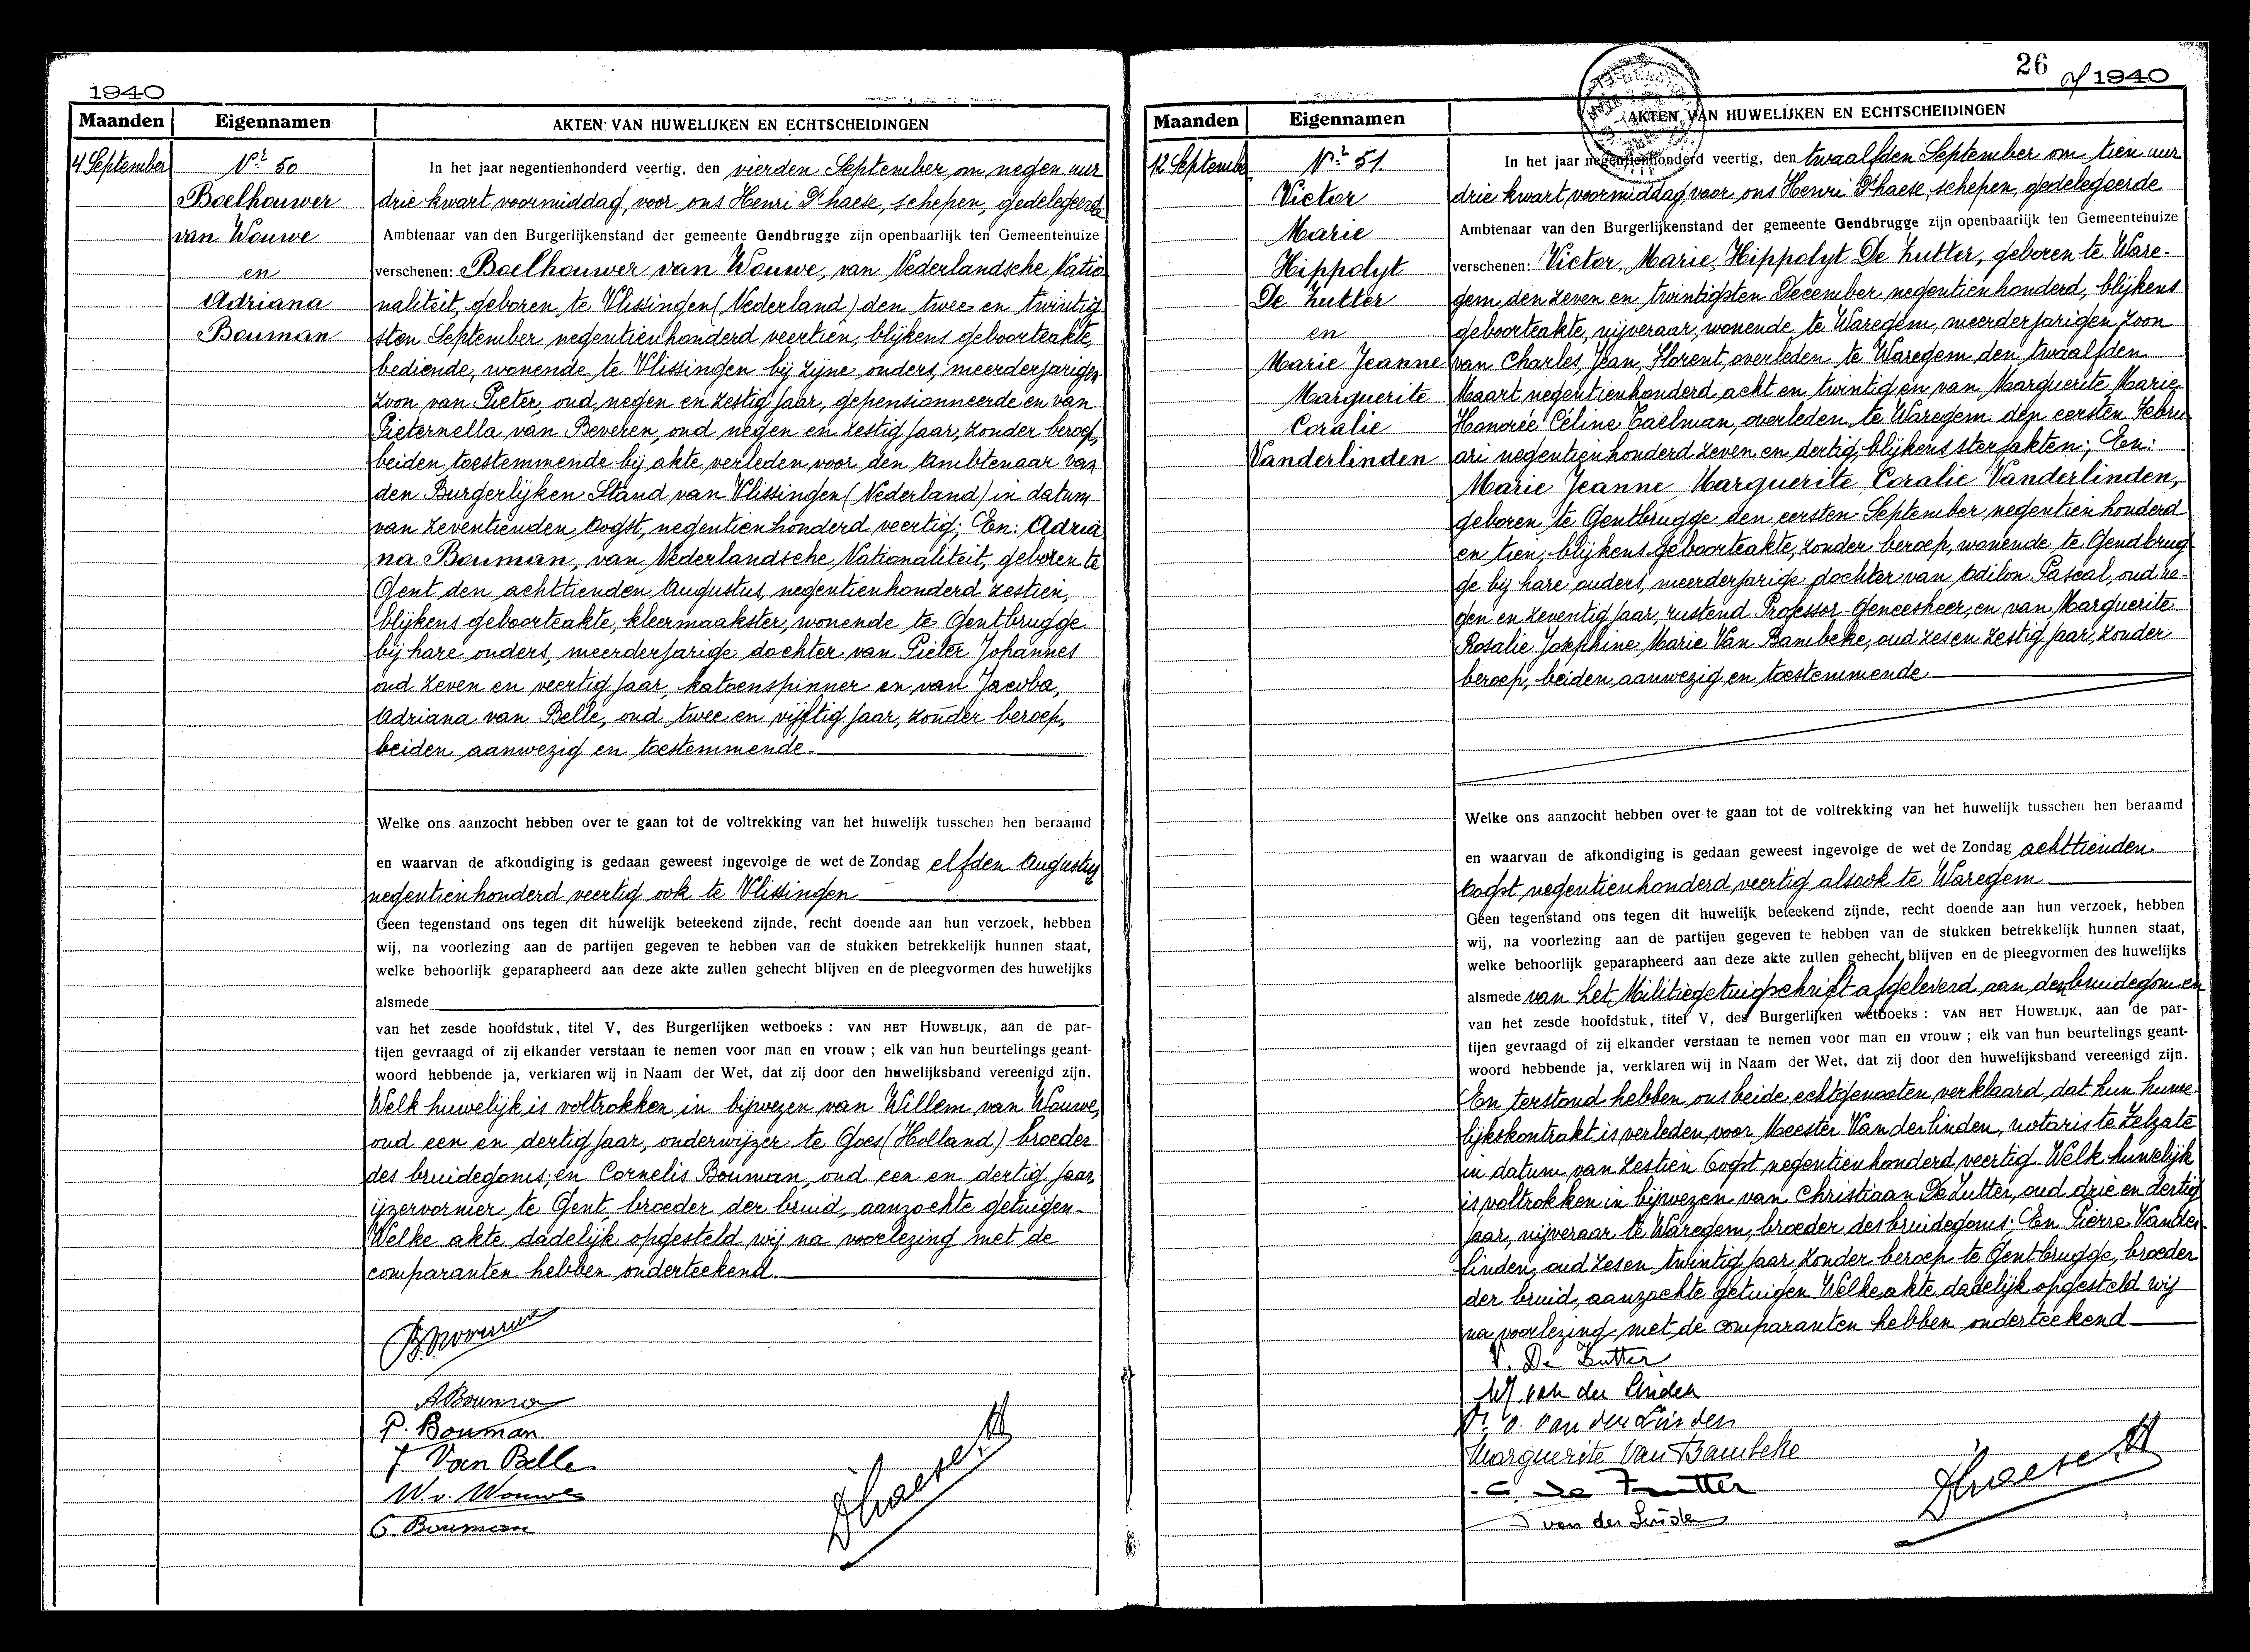 1940
Maanden
Eigennamen
AKTEN VAN HUWELIJKEN EN ECHTSCHEIDINGEN
4 September
Nr 50
Boelhouwer
van Wouwe
en
Adriana
Bouman
In het jaar negentienhonderd veertig, den vierden September, om negen uur
drie kwart voormiddag, voor ons Henri D'haese, schepen, gedelegeerde
Ambtenaar van den Burgerlijkenstand der gemeente Gendbrugge zijn openbaarlijk ten Gemeentehuize
verschenen: Boelhouwer van Wouwe, van Nederlandsche Natio
naliteit, geboren te Vlissingen (Nederland) den twee en twintig
sten September negentienhonderd veertien, blijkens geboorteakte,
bediende, wonende te Vlissingen bij zijne ouders, meerderjarigen
zoon van Pieter, oud negen en zestig jaar, gepensionneerde en van
Pieternella van Beveren, oud negen en zestig jaar, zonder beroep,
beiden toestemmende bij akte verleden voor den Ambtenaar van
den Burgerlijken Stand van Vlissingen (Nederland) in datum
van zeventienden Oogst, negentienhonderd veertig; En: Adria
na Bouman, van Nederlandsche Nationaliteit, geboren te
Gent den achttienden Augustus, negentienhonderd zestien,
blijkens geboorteakte, kleermaakster, wonende te Gentbrugge
bij hare ouders, meerderjarige dochter van Pieter Johannes
oud zeven en veertig jaar, katoenspinner en van Jacoba,
Adriana van Belle, oud twee en vijftig jaar, zonder beroep,
beiden aanwezig en toestemmende.
Welke ons aanzocht hebben over te gaan tot de voltrekking van het huwelijk tusschen hen beraamd
en waarvan de afkondiging is gedaan geweest ingevolge de wet de Zondag elfden Augustus
negentienhonderd veertig ook te Vlissingen
Geen tegenstand ons tegen dit huwelijk beteekend zijnde, recht doende aan hun verzoek, hebben
wij, na voorlezing aan de partijen gegeven te hebben van de stukken betrekkelijk hunnen staat,
welke behoorlijk geparapheerd aan deze akte zullen gehecht blijven en de pleegvormen des huwelijks
alsmede
van het zesde hoofdstuk, titel V, des Burgerlijken wetboeks : VAN HET HUWELIJK, aan de par-
tijen gevraagd of zij elkander verstaan te nemen voor man en vrouw ; elk van hun beurtelings geant-
woord hebbende ja, verklaren wij in Naam der Wet, dat zij door den huwelijksband vereenigd zijn.
Welk huwelijk is voltrokken in bijwezen van Willem van Wouwe,
oud een en dertig jaar, onderwijzer te Goes (Holland) broeder
des bruidegoms; en Cornelis Bouman, oud een en dertig jaar,
ijzervormer te Gent broeder der bruid, aanzochte getuigen.
Welke akte dadelijk opgesteld wij na voorlezing met de
comparanten hebben onderteekend.
A Bouman
P. Bouman
J. Van Belle
W v. Wouwe
C. Bouman
Dhaese H
26
1940
Maanden
Eigennamen
AKTEN VAN HUWELIJKEN EN ECHTSCHEIDINGEN
12 September
Nr 51.
Victor
Marie
Hippolyt
De Zutter
en
Marie Jeanne
Marguerite
Coralie
Vanderlinden
In het jaar negentienhonderd veertig, den twaalfden September om tien uur
drie kwart, voormiddag, voor ons Henri D'haese, schepen, gedelegeerde
Ambtenaar van den Burgerlijkenstand der gemeente Gendbrugge zijn openbaarlijk ten Gemeentehuize
verschenen: Victor, Marie, Hippolyt De Zutter, geboren te Ware-
gem, den zeven en twintigsten December negentienhonderd, blijkens
geboorteakte, nijveraar, wonende te Waregem, meerderjarigen zoon
van Charles, Jean, Florent, overleden te Waregem den twaalfden
Maart negentienhonderd acht en twintig en van Marguerite Marie
Honorée Céline Taelman, overleden te Waregem den eersten Febru
ari negentienhonderd zeven en dertig, blijkens sterfakten; En:
Marie Jeanne Marguerite Coralie Vanderlinden,
geboren te Gentbrugge den eersten September negentienhonderd
en tien, blijkens geboorteakte, zonder beroep, wonende te Gendbrug
ge bij hare ouders, meerderjarige dochter van Odilon Pascal, oud ne-
gen en zeventig jaar, rustend Professor-Geneesheer, en van Marguerite
Rosalie Josephine Marie Van Bambeke, oud zes en zestig jaar, zonder
beroep, beiden aanwezig en toestemmende
Welke ons aanzocht hebben over te gaan tot de voltrekking van het huwelijk tusschen hen beraamd
en waarvan de afkondiging is gedaan geweest ingevolge de wet de Zondag achttienden
Oogst negentienhonderd veertig alsook te Waregem
Geen tegenstand ons tegen dit huwelijk beteekend zijnde, recht doende aan hun verzoek, hebben
wij, na voorlezing aan de partijen gegeven te hebben van de stukken betrekkelijk hunnen staat,
welke behoorlijk geparapheerd aan deze akte zullen gehecht blijven en de pleegvormen des huwelijks
alsmede van het Militiegetuigschrift afgeleverd aan den bruidegom en
van het zesde hoofdstuk, titel V, des Burgerlijken wetboeks : VAN HET HUWELIJK, aan de par-
tijen gevraagd of zij elkander verstaan te nemen voor man en vrouw ; elk van hun beurtelings geant-
woord hebbende ja, verklaren wij in Naam der Wet, dat zij door den huwelijksband vereenigd zijn.
En terstond hebben ons beide echtgenooten verklaard, dat hun huwe-
lijkskontrakt is verleden voor Meester Vanderlinden, notaris te Zelzate
in datum van zestien Oogst negentienhonderd veertig. Welk huwelijk
is voltrokken in bijwezen van Christiaan De Zutter, oud drie en dertig
jaar, nijveraar te Waregem, broeder des bruidegoms. En Pierre Vander-
linden, oud zes en twintig jaar, zonder beroep te Gentbrugge, broeder
der bruid, aanzochte getuigen. Welke akte dadelijk opgesteld wij
na voorlezing met de comparanten hebben onderteekend
V. De Zutter
van der Linden
van der Linden
Marguerite Van Bambeke
C. De Zutter
van der Linden
Dhaese H